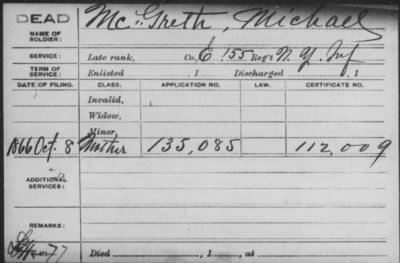 DEAD
NAME OF SOLDIER: McGreth, Michael
SERVICE: Late rank, Co. E 155 Reg't N. Y. Inf
TERM OF SERVICE: Enlisted , 1 Discharged , 1
DATE OF FILING. CLASS. APPLICATION NO. LAW. CERTIFICATE NO.
Invalid,
Widow,
Minor,
1866 Oct. 8 Mother 135,085 112,009
ADDITIONAL SERVICES:
REMARKS:
77 Died , 1 , at